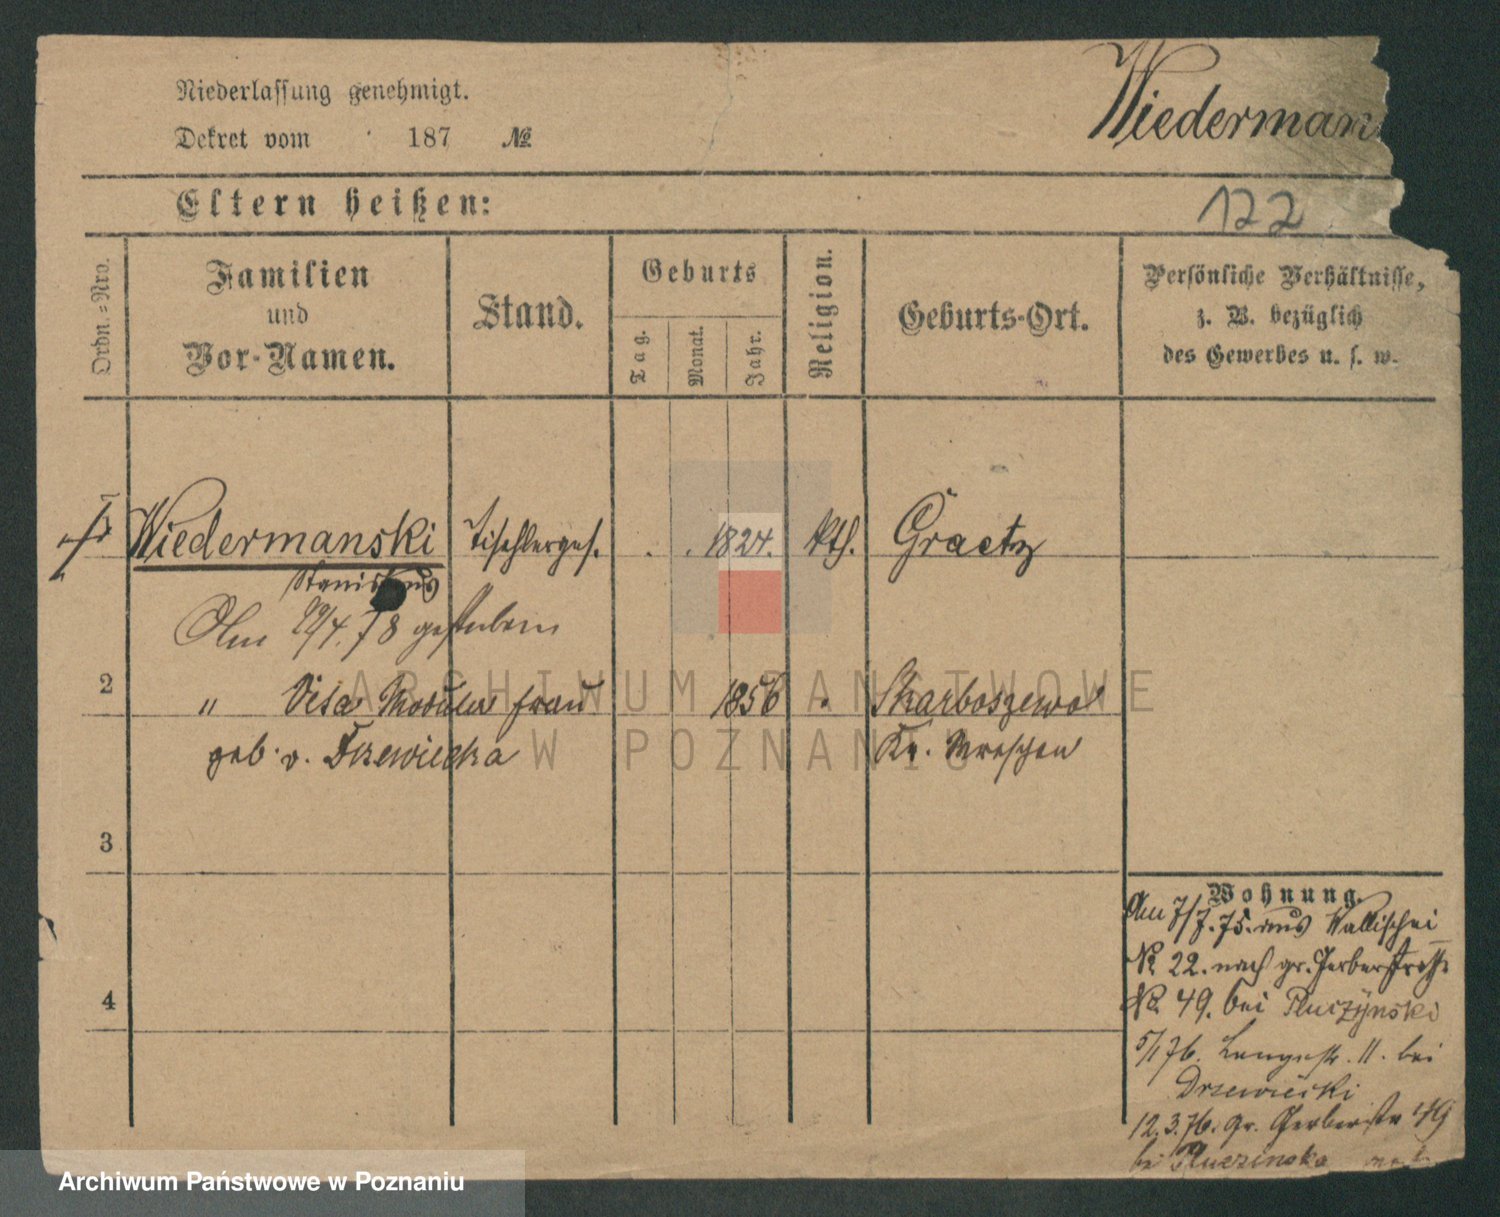 Niederlassung genehmigt.
Dekret vom 187 №
Wiederman
Eltern heißen:
122
Ordn.=Nro.
Familien
und
Vor-Namen.
Stand.
Geburts
Tag.
Monat.
Jahr.
Religion.
Geburts-Ort.
Persönliche Verhältnisse,
z. B. bezüglich
des Gewerbes u. s. w.
1 Wiedermanski Tischlerges. . . 1824. kth. Graetz
Stanislaus
Am 29/4. 78 gestorben
2 " frau 1856 . Skarboszewo
geb. v. Drzewiecka Kr. Wreschen
3
4
Wohnung.
Am 7/7. 75. aus Wallischei
№ 22. nach gr. Gerberstraße
№ 49. bei Pluczynski
5/1 76. Langestr. 11. bei
Drzewiecki
12.3.76. gr. Gerberstr 49
bei Pluczinska
ARCHIWUM PAŃSTWOWE
W POZNANIU
Archiwum Państwowe w Poznaniu